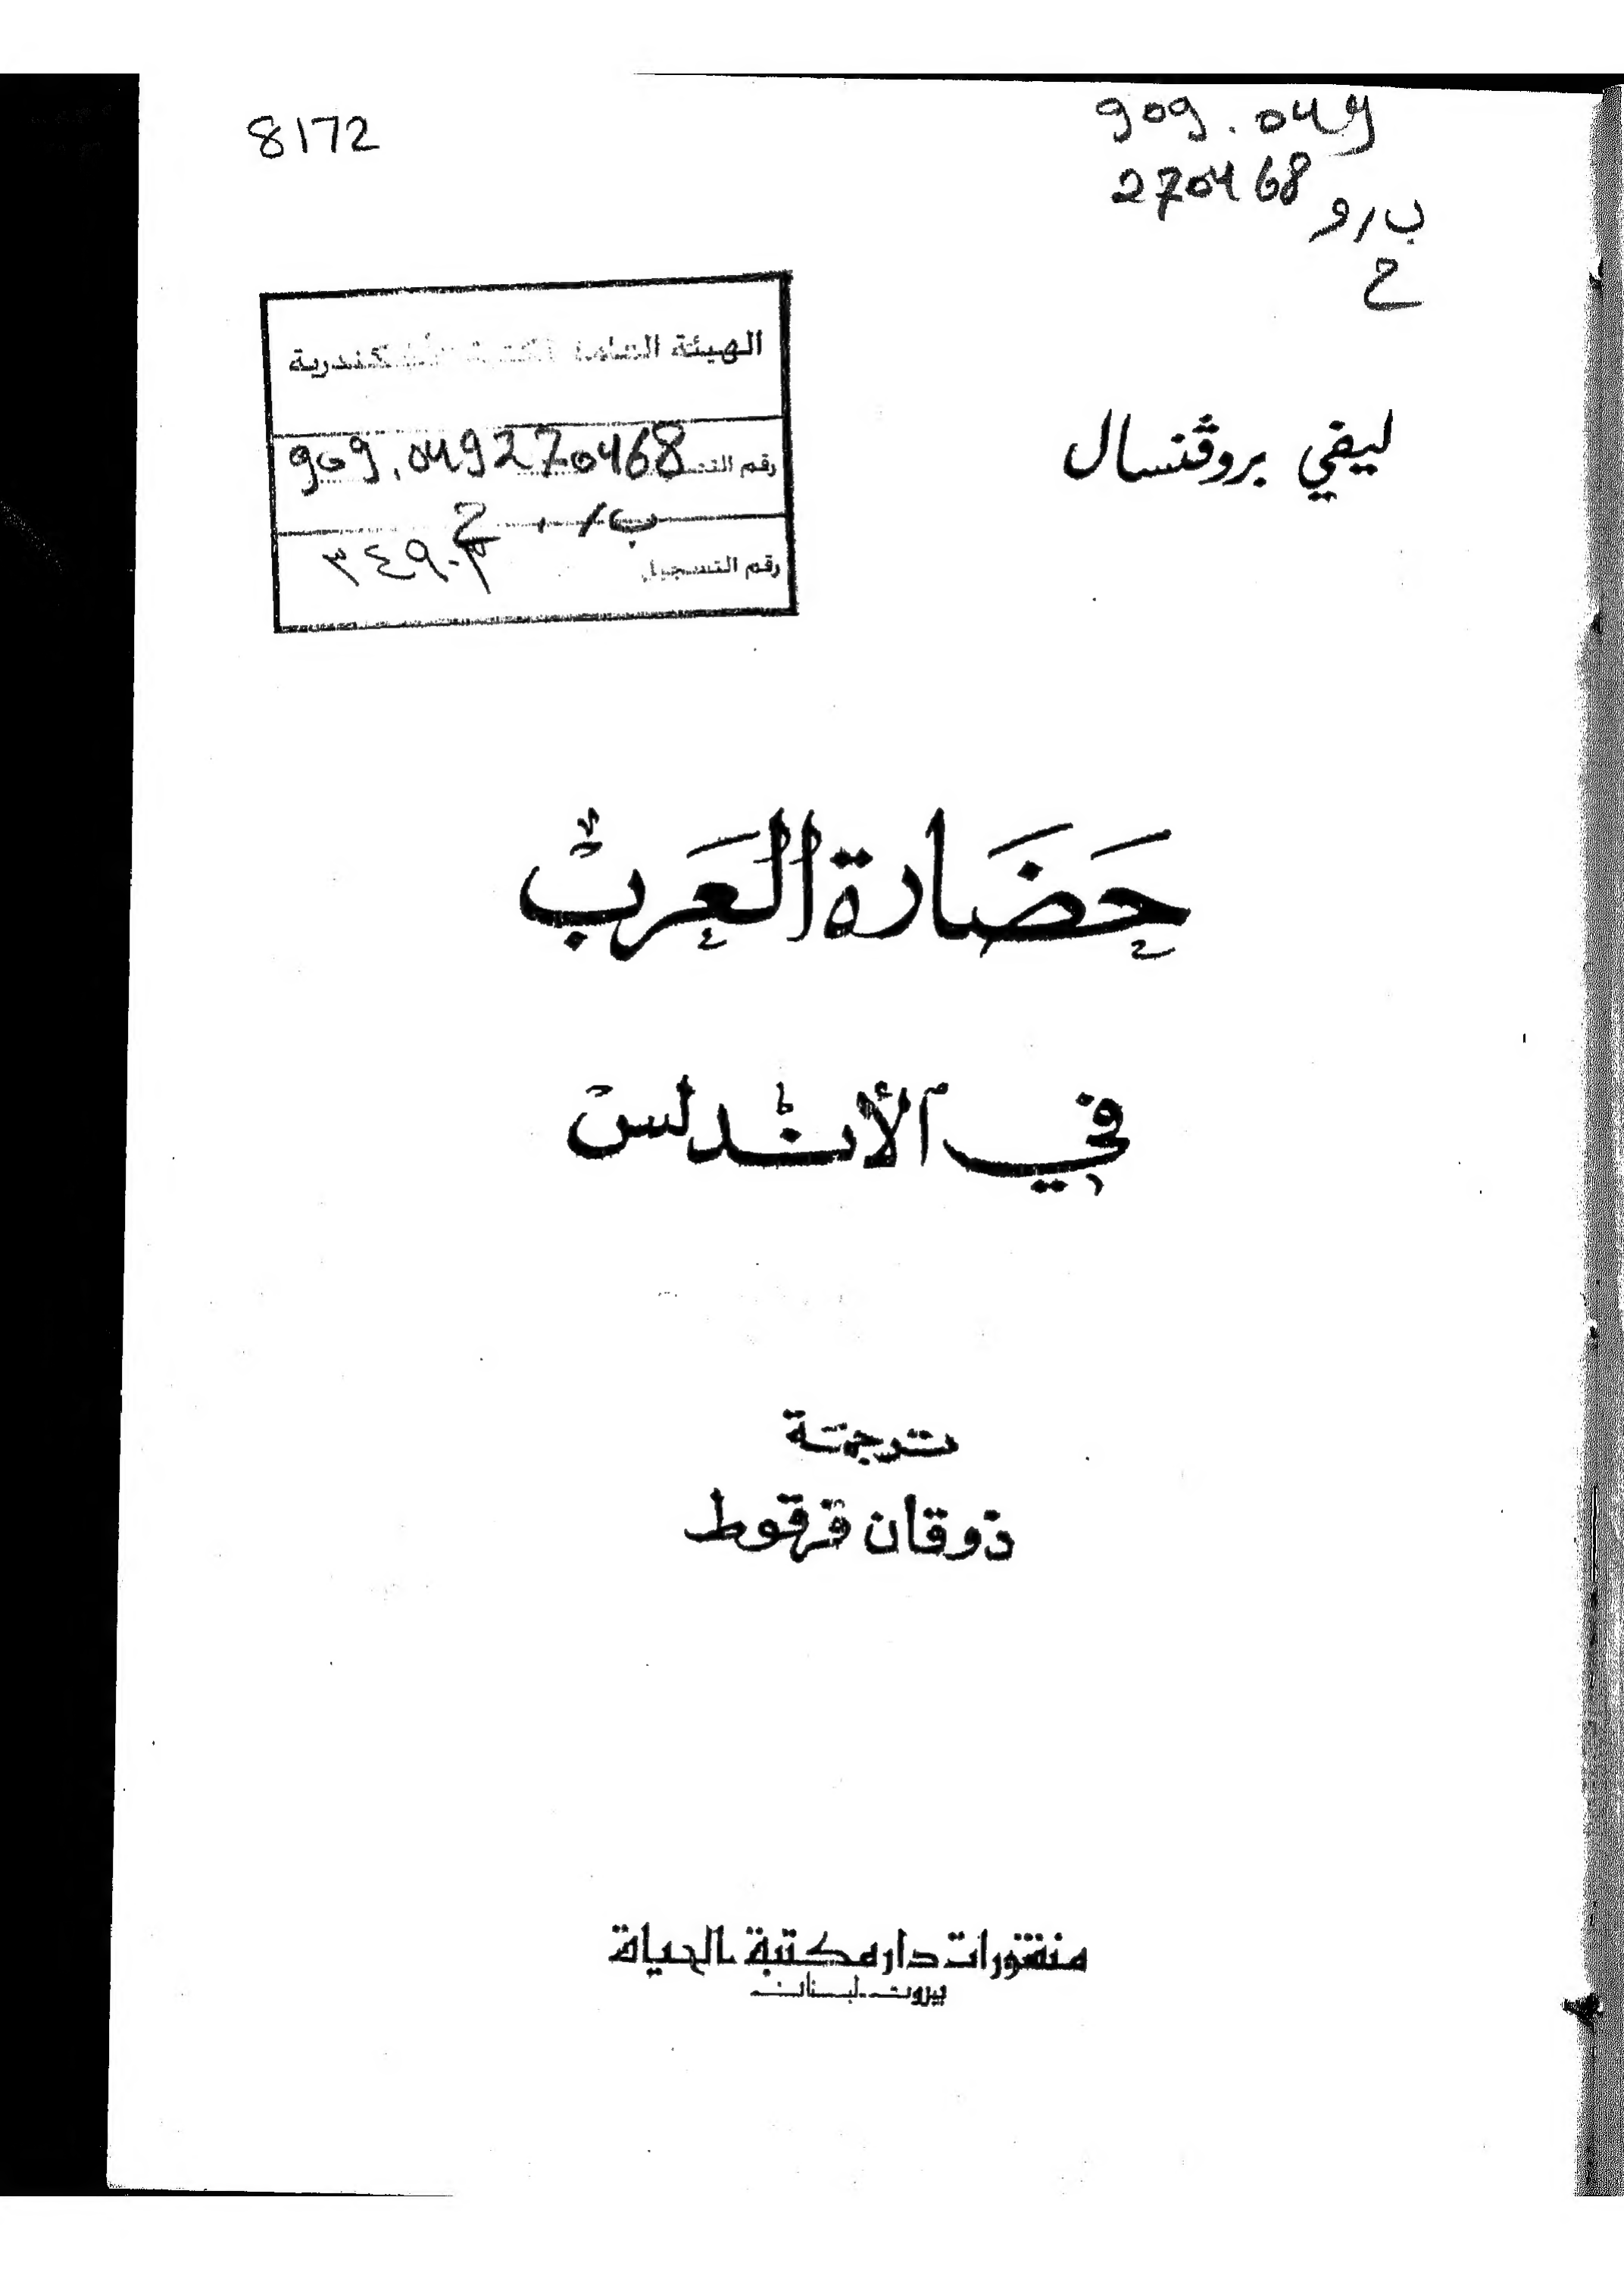 8172
909.049
270468
ب/و
ح
الهيئة العامة لمكتبة الأسكندرية
رقم التصنيف 909.049270468
ب/ ح
رقم التسجيل ٣٤٩٠٣
ليفي بروڤنسال
حَضَارة العَرب
في الأندلس
ترجمة
ذوقان قرقوط
منشورات دار مكتبة الحياة
بيروت - لبنان